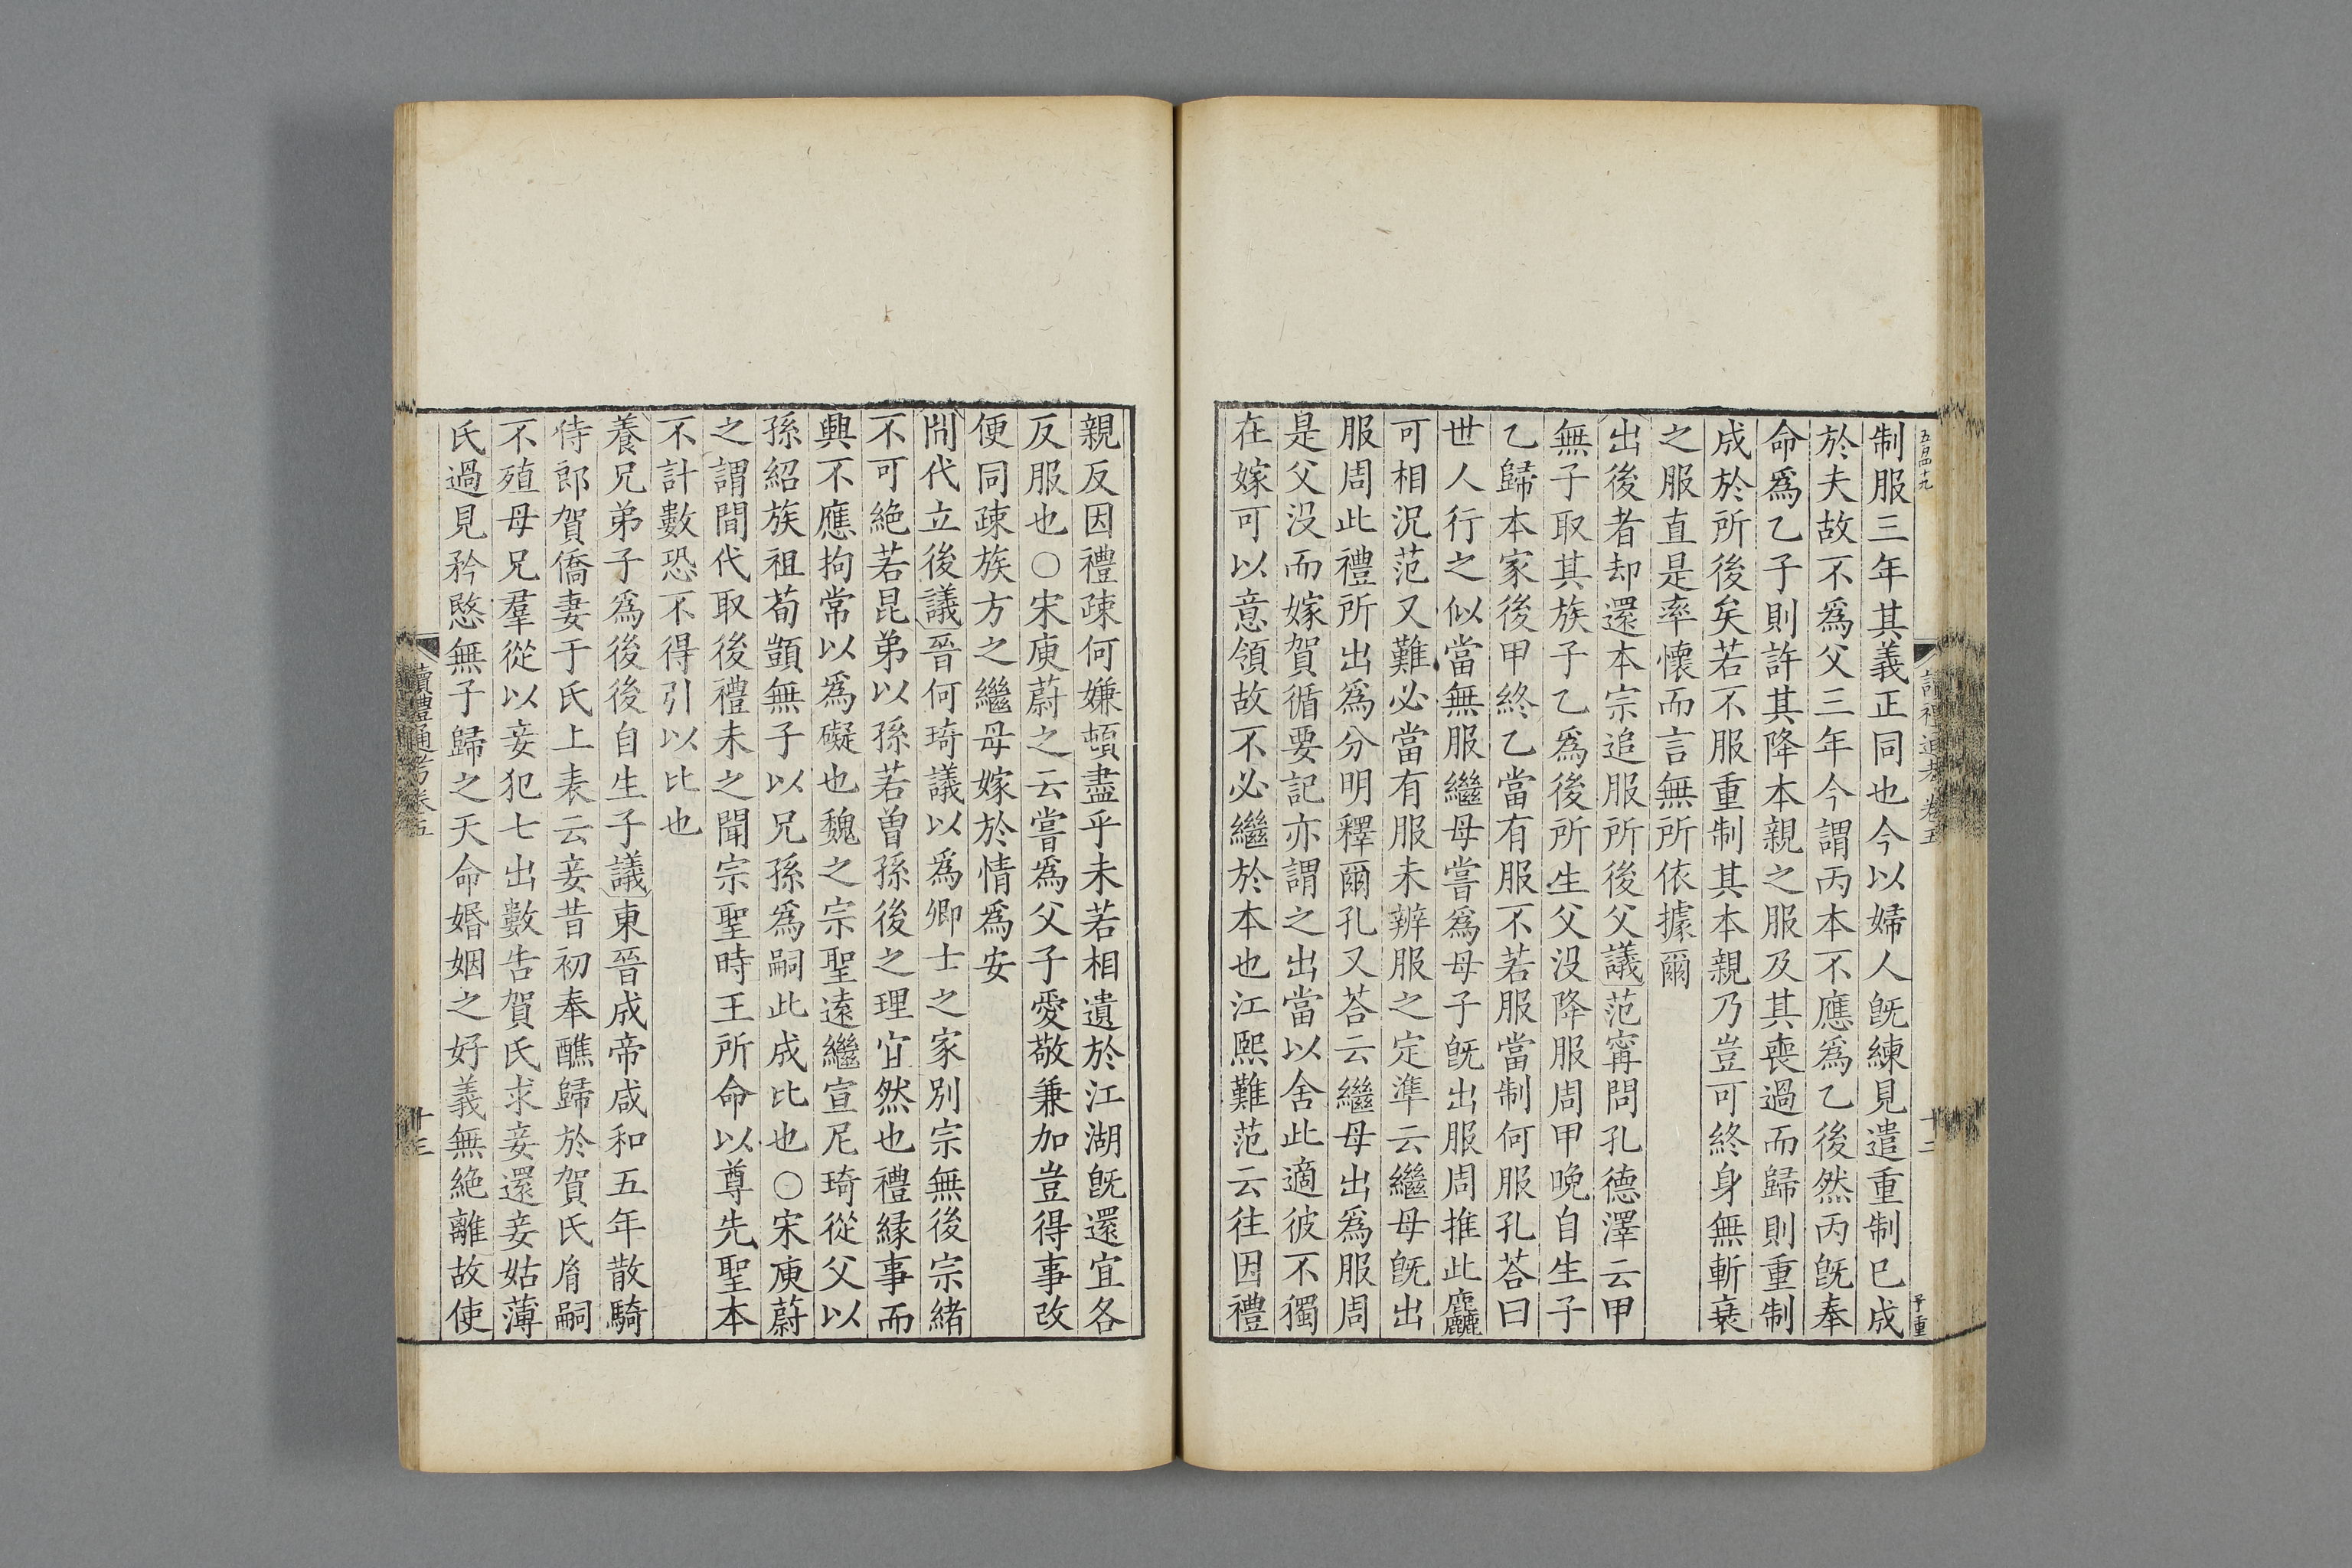 五百四十九
讀禮通考 卷五
十二
制服三年其義正同也今以婦人旣練見遣重制已成
於夫故不爲父三年今謂丙本不應爲乙後然丙旣奉
命爲乙子則許其降本親之服及其喪過而歸則重制
成於所後矣若不服重制其本親乃豈可終身無斬衰
之服直是率懷而言無所依據爾
出後者却還本宗追服所後父議范甯問孔德澤云甲
無子取其族子乙爲後所生父没降服周甲晚自生子
乙歸本家後甲終乙當有服不若服當制何服孔荅曰
世人行之似當無服繼母嘗爲母子旣出服周推此麤
可相況范又難必當有服未辨服之定準云繼母旣出
服周此禮所出爲分明釋爾孔又荅云繼母出爲服周
是父没而嫁賀循要記亦謂之出當以舍此適彼不獨
在嫁可以意領故不必繼於本也江熙難范云往因禮
親反因禮疎何嫌頓盡乎未若相遺於江湖旣還宜各
反服也○宋庾蔚之云嘗爲父子愛敬兼加豈得事改
便同疎族方之繼母嫁於情爲安
間代立後議晉何琦議以爲卿士之家別宗無後宗緒
不可絶若昆弟以孫若曾孫後之理宜然也禮緣事而
興不應拘常以爲礙也魏之宗聖遠繼宣尼琦從父以
孫紹族祖荀顗無子以兄孫爲嗣此成比也○宋庾蔚
之謂間代取後禮未之聞宗聖時王所命以尊先聖本
不計數恐不得引以比也
養兄弟子爲後後自生子議東晉成帝咸和五年散騎
侍郎賀僑妻于氏上表云妾昔初奉醮歸於賀氏胤嗣
不殖母兄羣從以妾犯七出數告賀氏求妾還妾姑薄
氏過見矜愍無子歸之天命婚姻之好義無絶離故使
讀禮通考卷五
十三